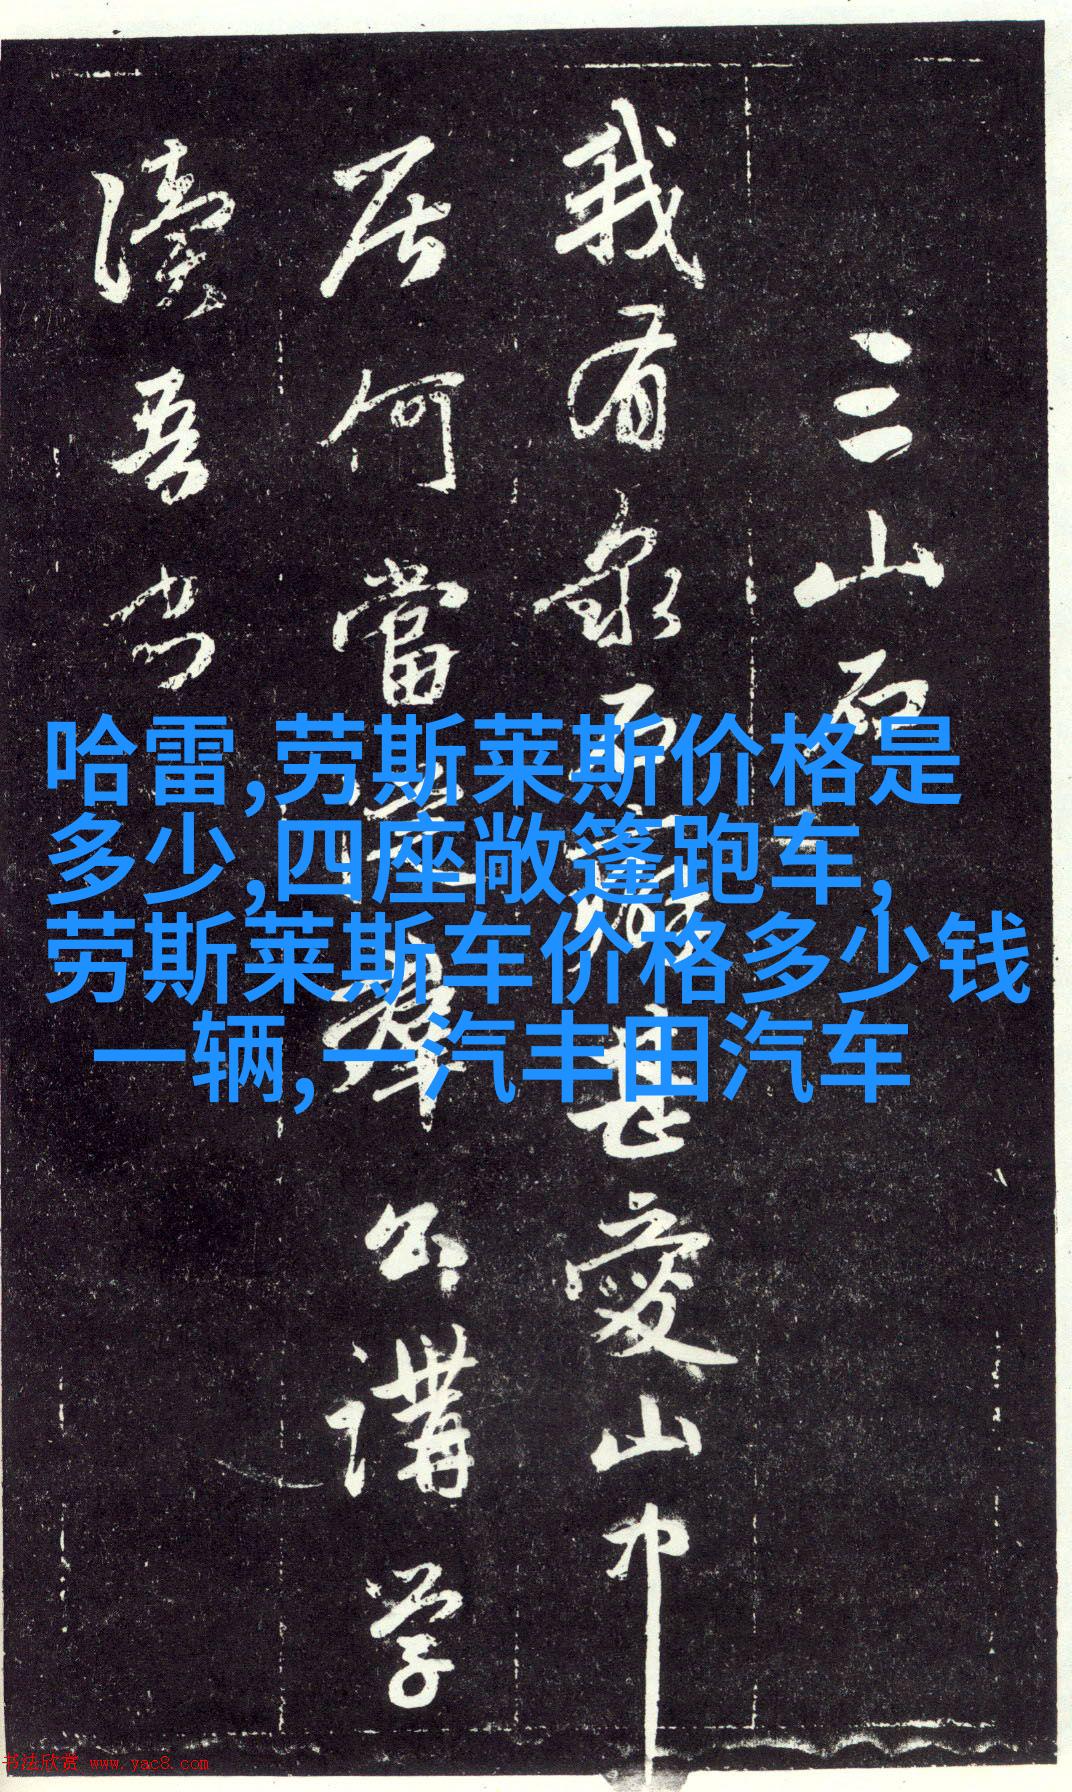 三山石
我有泉石癖甚愛山中
居何當群公講学
讀吾书
哈雷,劳斯莱斯价格是
多少,四座敞篷跑车,
劳斯莱斯车价格多少钱
一辆,一汽丰田汽车
书法欣赏 www.yac8.com